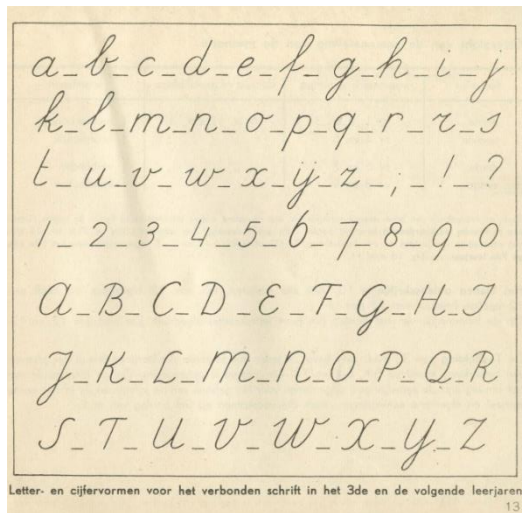 a_b_c_d_e_f_g_h_i_j
k_l_m_n_o_p_q_r_r_s
t_u_v_w_x_ÿ_z_;_!_?
1_2_3_4_5_6_7_8_9_0
A_B_C_D_E_F_G_H_I
J_K_L_M_N_O_P_Q_R
S_T_U_V_W_X_Y_Z
Letter- en cijfervormen voor het verbonden schrift in het 3de en de volgende leerjaren
13